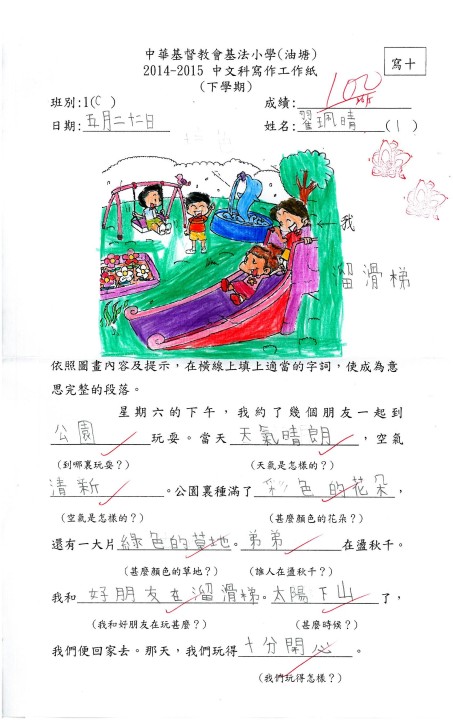 中華基督教會基法小學(油塘)
2014-2015 中文科寫作工作紙
寫十
(下學期)
班別:1(C) 成績: 100
日期:五月二十二日 姓名:翟珮晴(1)
我
溜滑梯
依照圖畫內容及提示,在橫線上填上適當的字詞,使成為意
思完整的段落。
星期六的下午,我約了幾個朋友一起到
公園玩耍。當天天氣晴朗,空氣
(到哪裏玩耍?) (天氣是怎樣的?)
清新。公園裏種滿了彩色的花朵,
(空氣是怎樣的?) (甚麼顏色的花朵?)
還有一大片綠色的草地。弟弟在盪秋千。
(甚麼顏色的草地?) (誰人在盪秋千?)
我和好朋友在溜滑梯。太陽下山了,
(我和好朋友在玩甚麼?) (甚麼時候?)
我們便回家去。那天,我們玩得十分開心。
(我們玩得怎樣?)